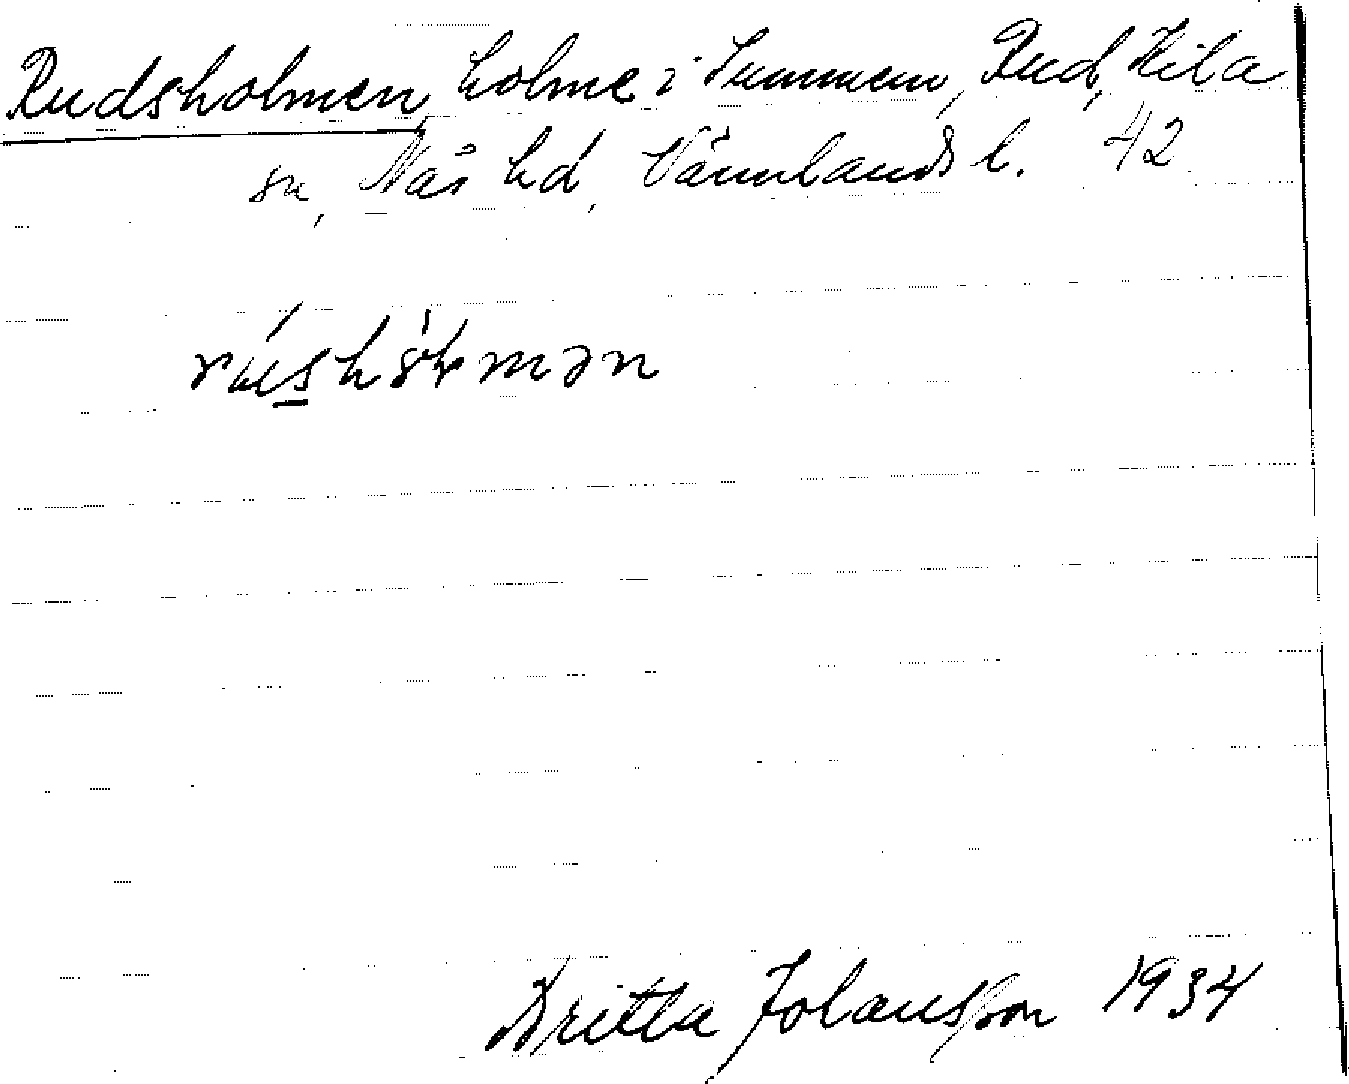 Rudsholmen, holme i Summeln, Rud, Kila
sn, Näs hd, Värmlands l. 42
Britta Johansson 1934